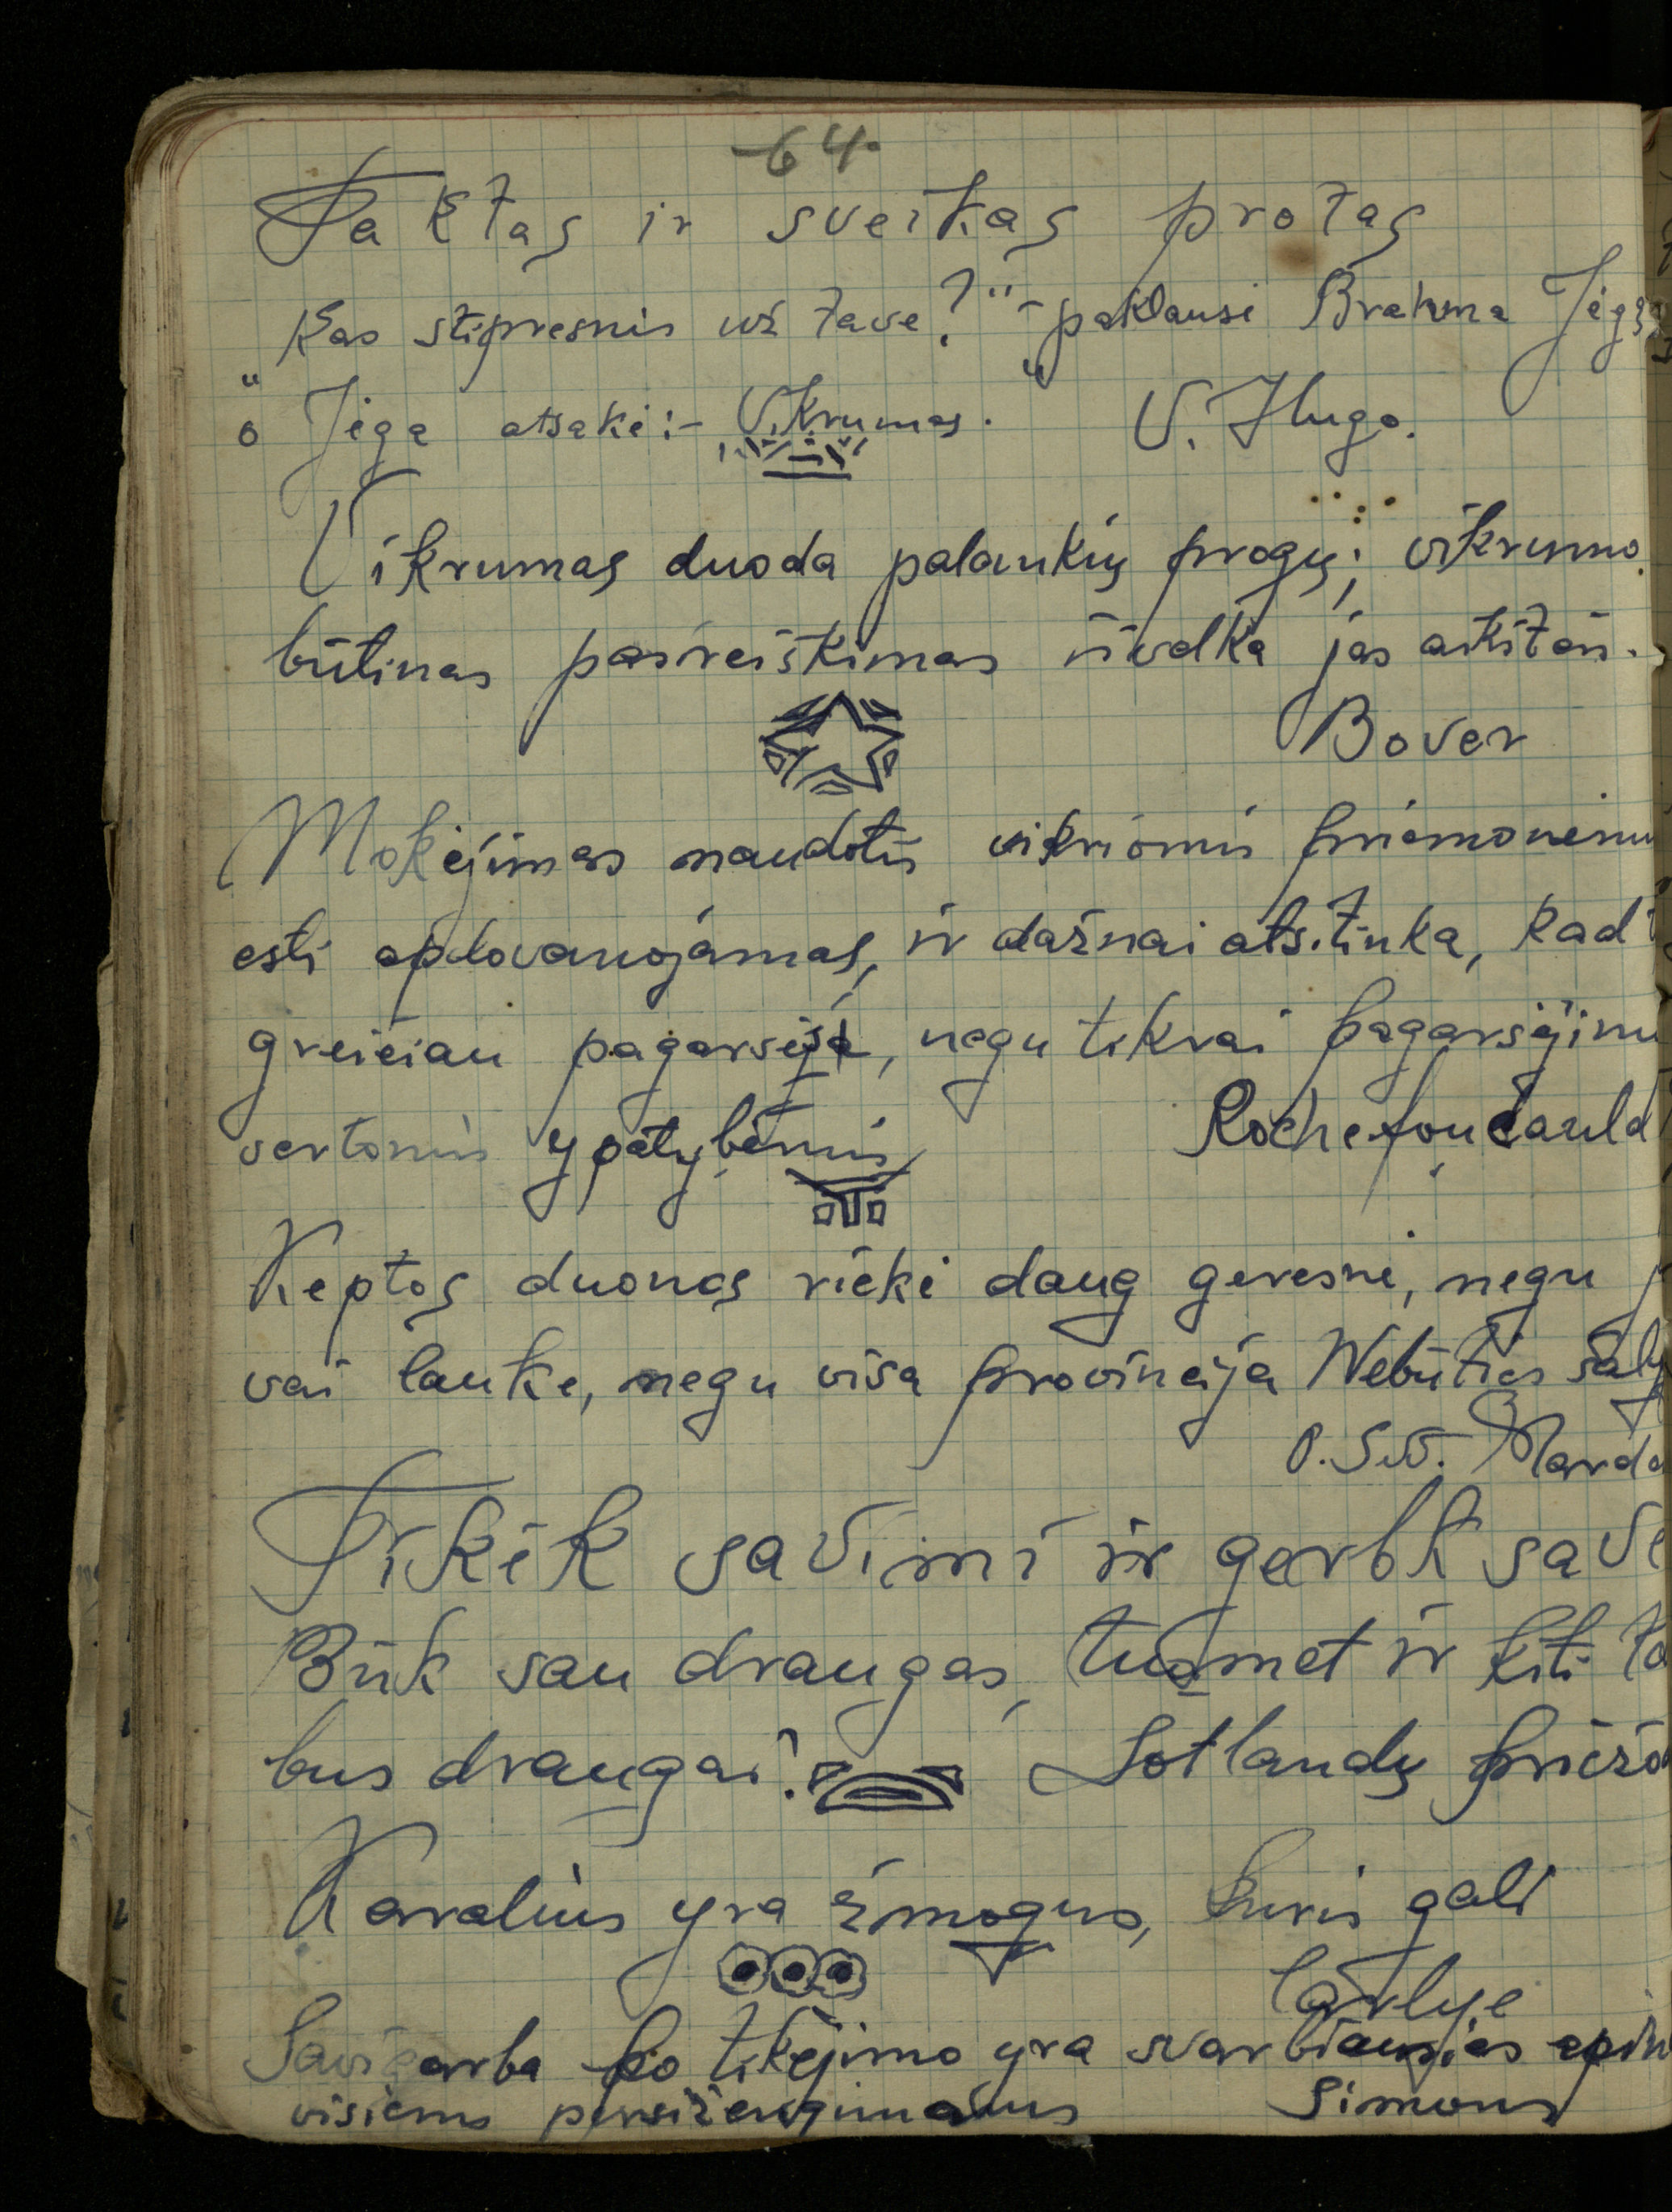 64.
Taktas ir sveikas protas
Kas stipresnis už tave?" - paklausė Brahma Jėgą
"o Jėga atsakė:- Vikrumas." V. Hugo.
Vikrumas duoda palankių progų; vikrumo
būtinas pasireiškimas išvelka jas aikštėn.
Bover
Mokėjimas naudotis vikriomis priemonėmis
esti apdovanojamas, ir dažnai atsitinka, kad
greičiau pagarsėja, negu tikrai pagarsėjimo
vertomis ypatybėmis Rochefoucauld
Keptos duonos riekė daug geresnė, negu
vai lauke, negu visa provincija Nebūties šaly
O. S. Marde
Tikėk savimi ir gerbk save
Būk sau draugas, tuomet ir kiti ta
bus draugai! Šotlandų priežo
Karalius yra žmogus, kuris gali
Carlyle
Savigarba po tikėjimo yra svarbiausias
visiems persižengimams Simons